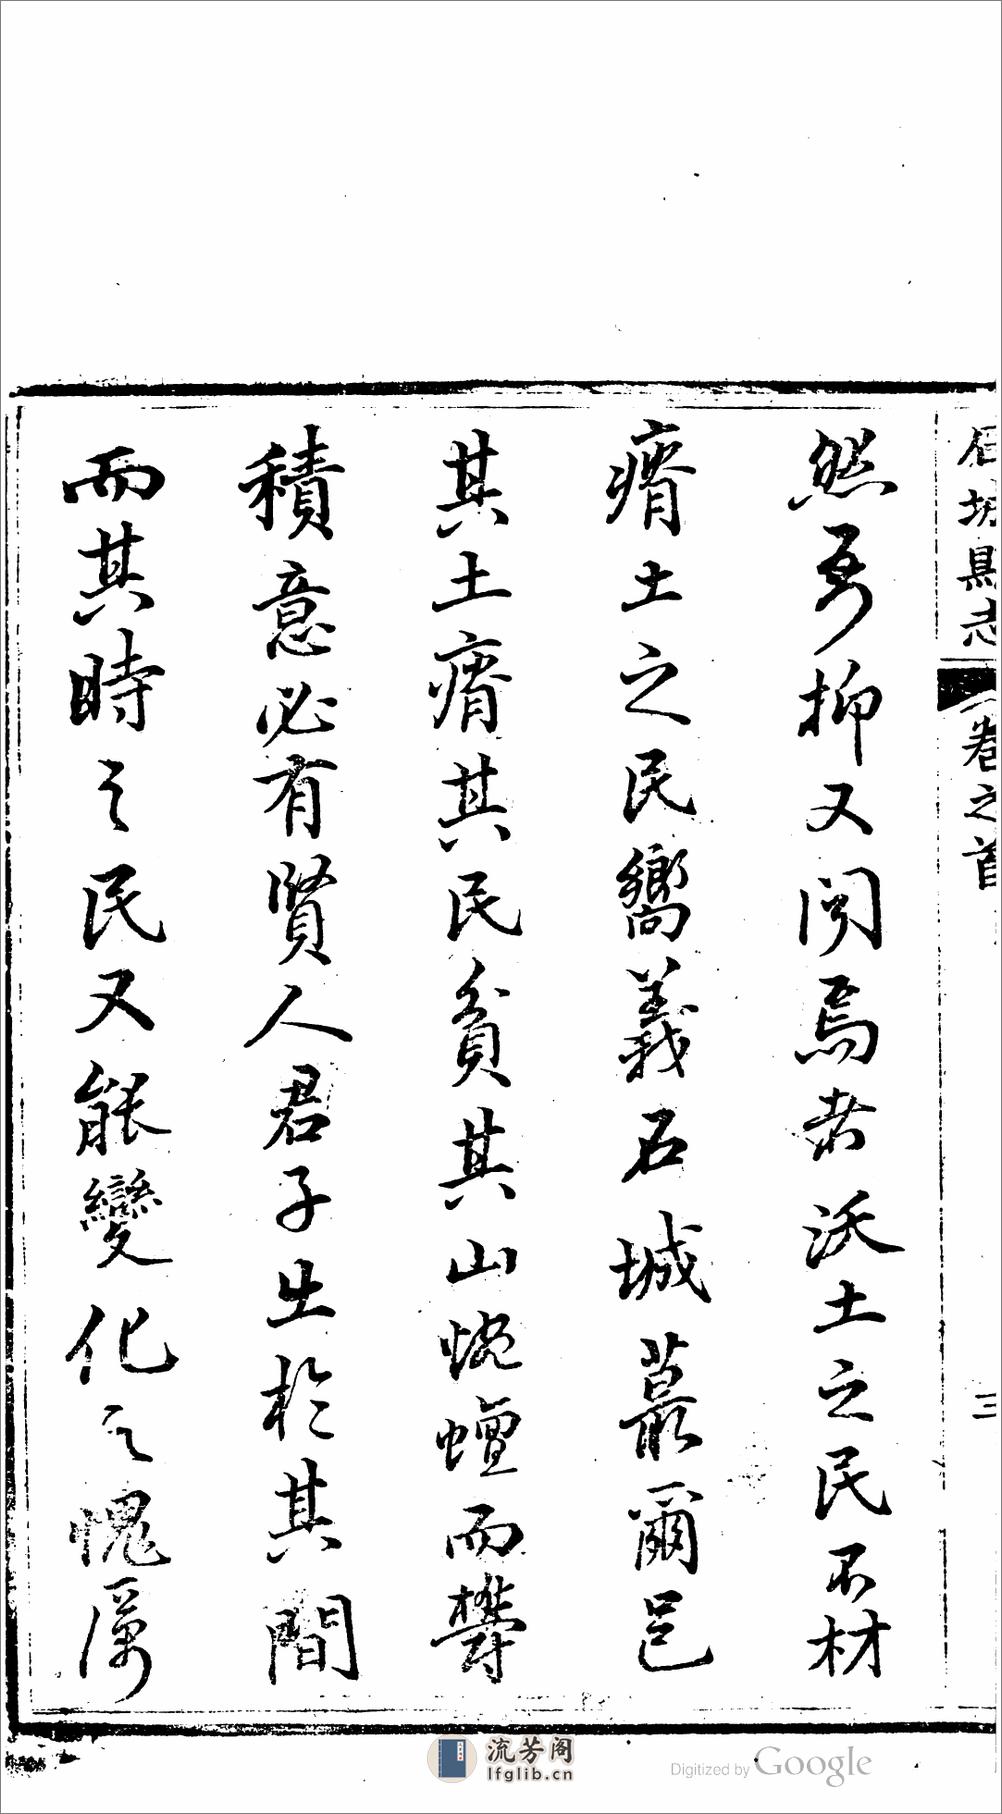 石城縣志 卷之首 三
然抑又聞焉者沃土之民不材
瘠土之民嚮義石城蕞爾邑
其土瘠其民貧其山蜿蟺而鬱
積意必有賢人君子生於其間
而其時之民又能變化之愧厲
流芳阁
lfglib.cn
Digitized by Google